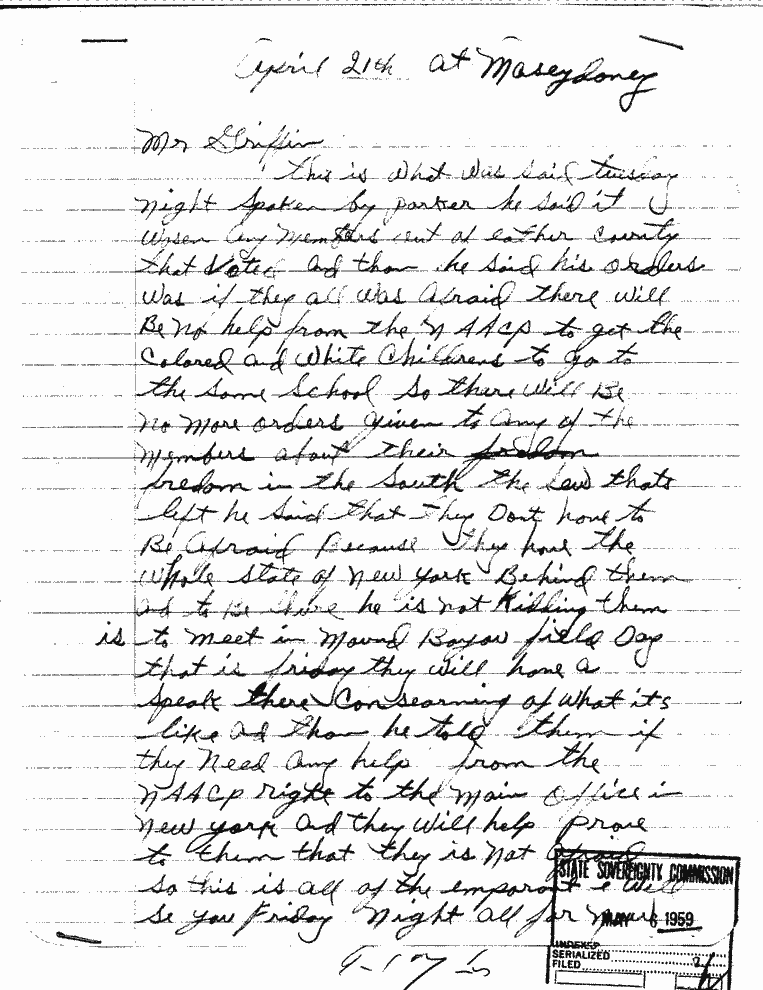 April 21th at Maseydoney
Mr Griffin
this is what was said tuesday
Night spoken by parker he said it
wasen any Members out at eather County
that Voted and than he said his orders
was if they all Was afraid there will
Be no help from the NAACP to get the
Colored and White Childrens to go to
the same School so there Will Be
no more orders given to any of the
members about their
fredom in the South the few thats
left he said that they Dont have to
Be Afraid Because they have the
Whole State of New York Behind them
and to Be there he is not Kidding them
is to meet in Mound Bayou field Day
that is friday they will have a
Speak there Consearning of What it's
like and than he told them if
they Need any help from the
NAACP right to the Main Office in
New york And they Will help prove
to them that they is Not afraid
so this is all of the emporant i Will
Se you Friday Night all for Now
STATE SOVEREIGNTY COMMISSION
MAY 6 1959
INDEXED
SERIALIZED
FILED